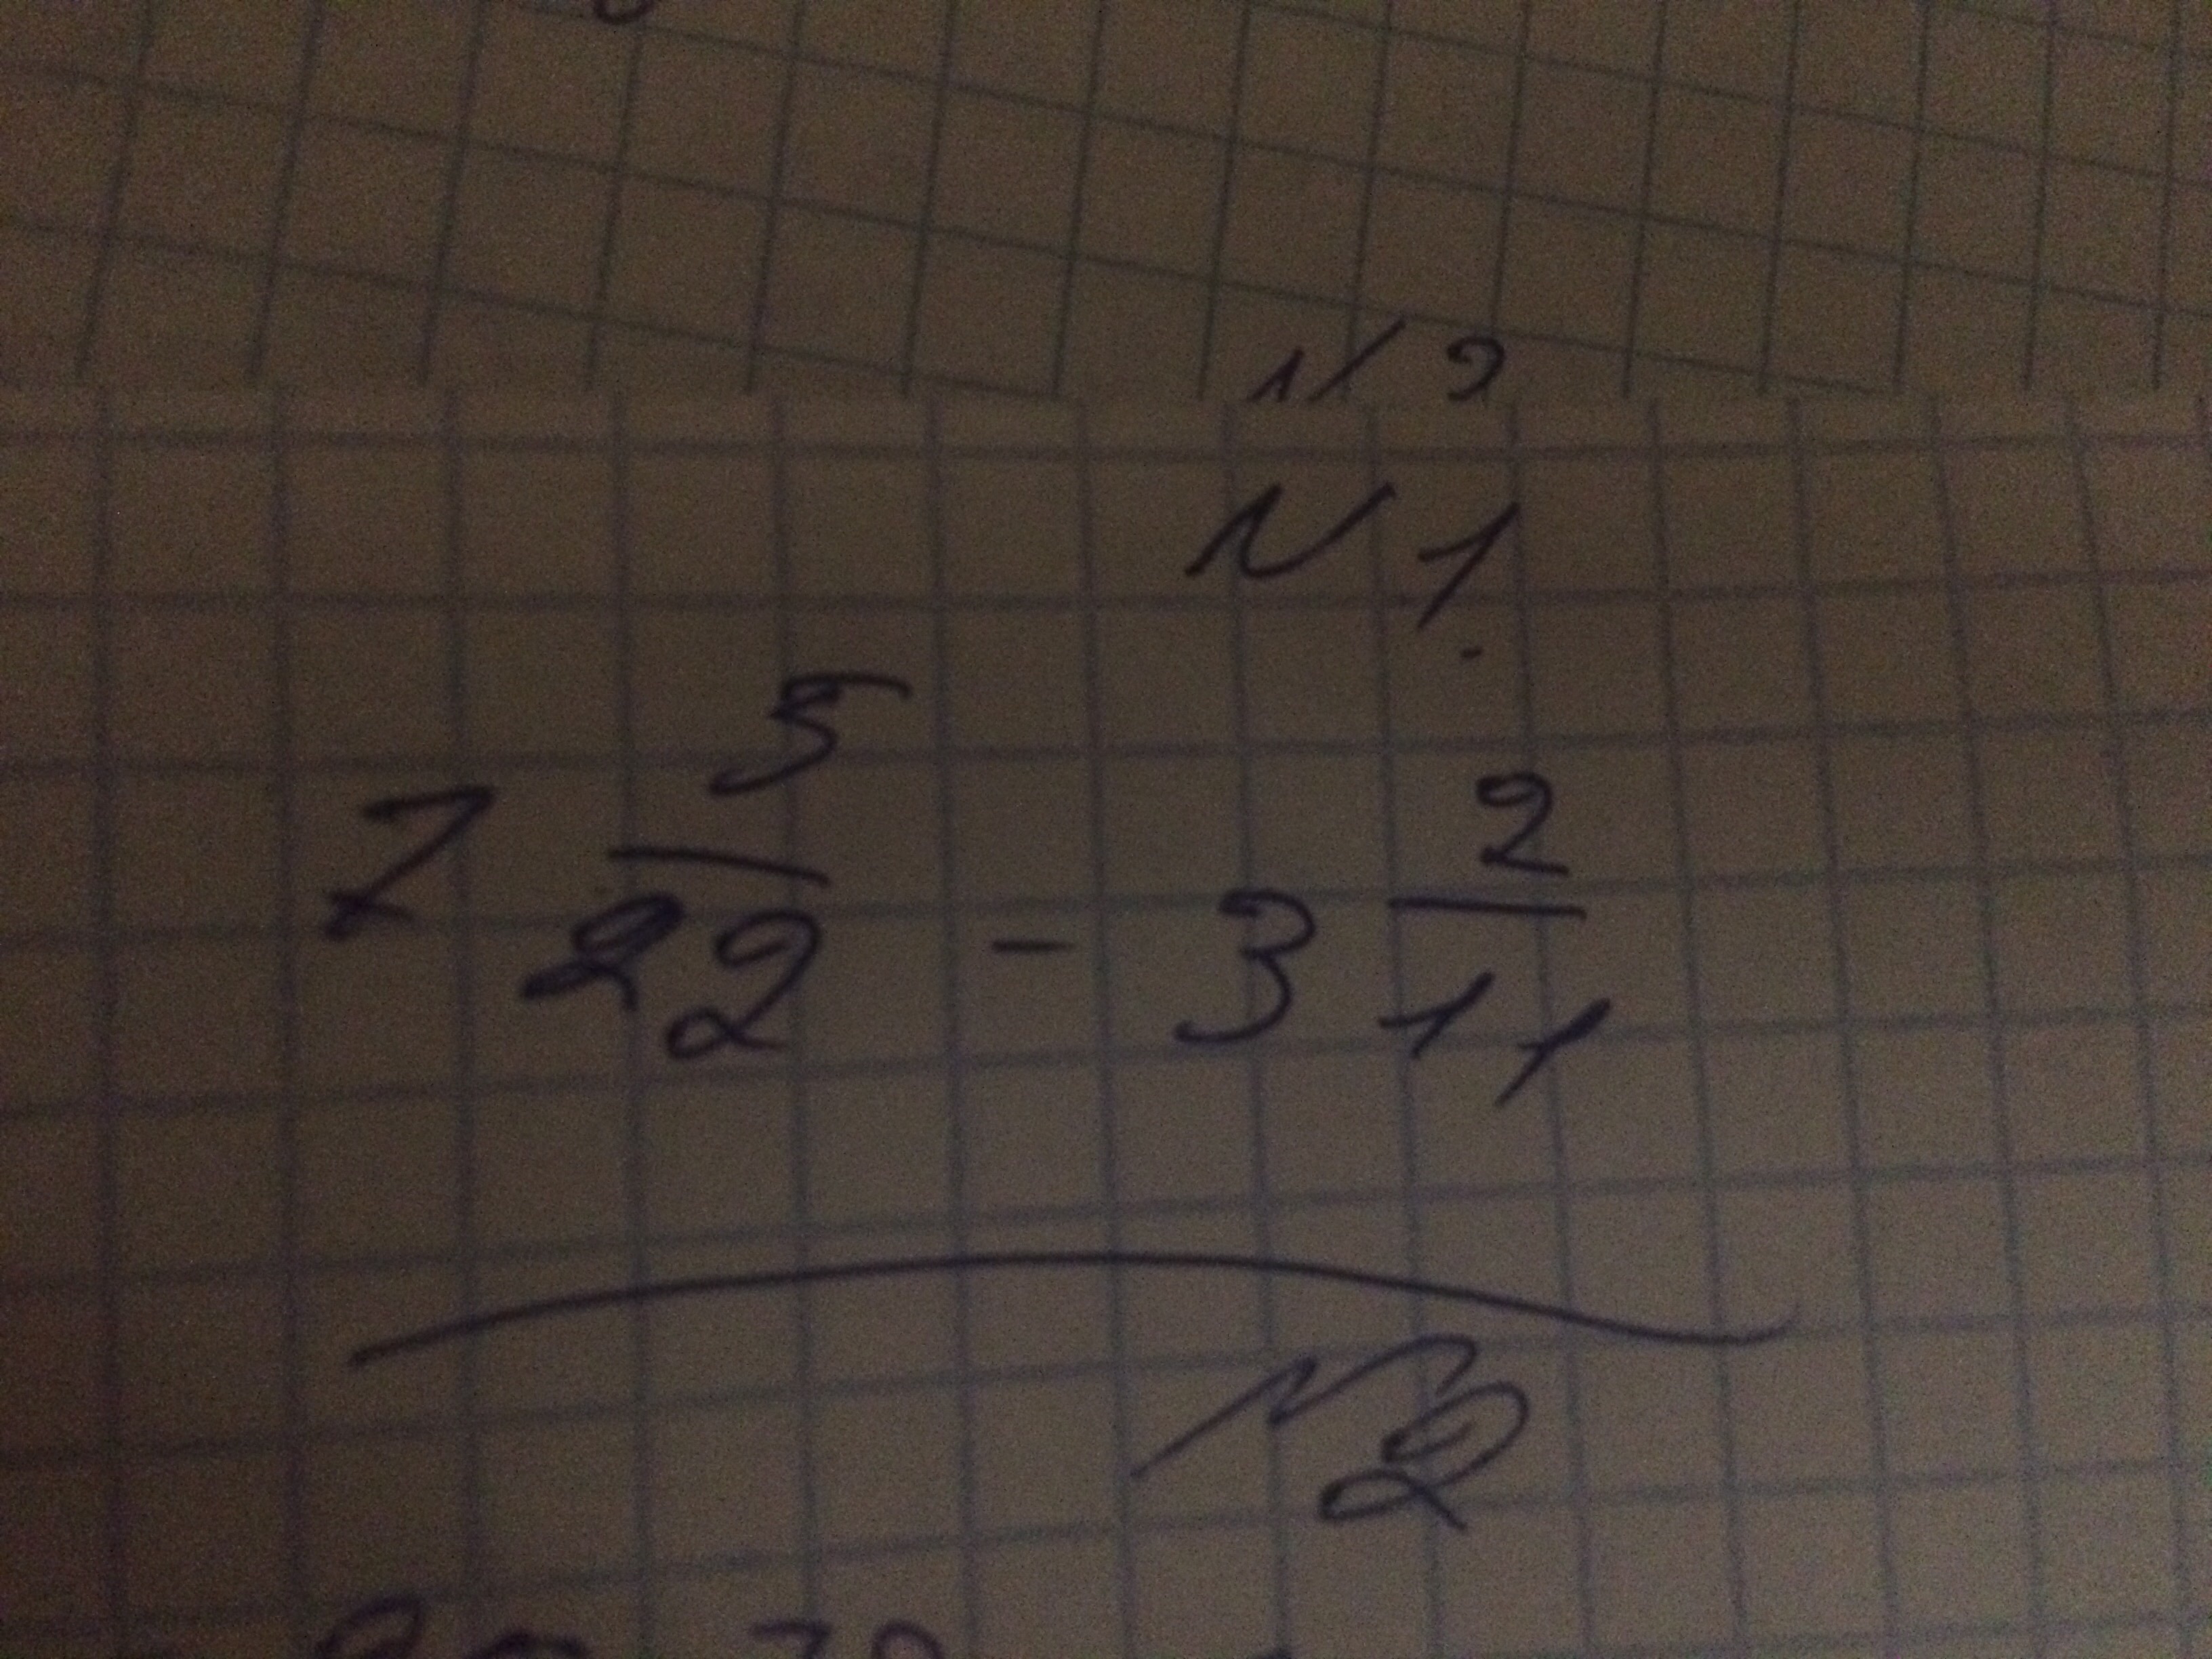 N 2
N 1.
7 5/22 - 3 2/11
N2